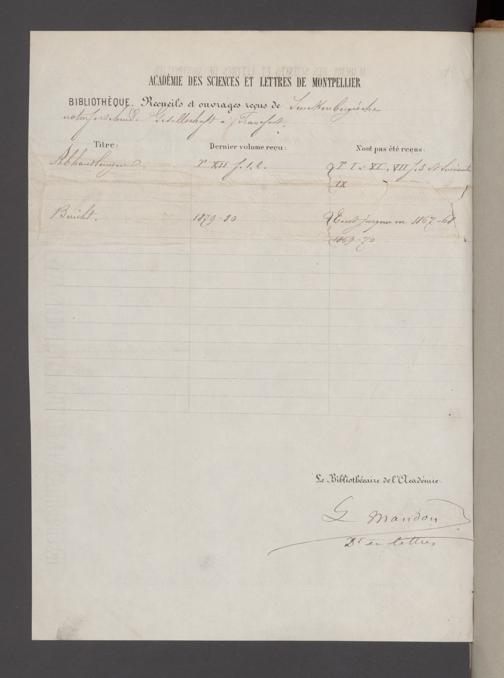 ACADÉMIE DES SCIENCES ET LETTRES DE MONTPELLIER
BIBLIOTHÈQUE. Recueils et ouvrages reçus de Senckenbergische
naturforschend. Gesellschaft à Francfort.
Titre: Dernier volume reçu: Nont pas été reçus:
Abhandlungen T. XII f. 1. 2. T. I à VI, VII f. et suivants
IX
Bericht. 1879-80 1867-68
1869-70
Le Bibliothécaire de l'Académie
G Mandon
Dr ès lettres